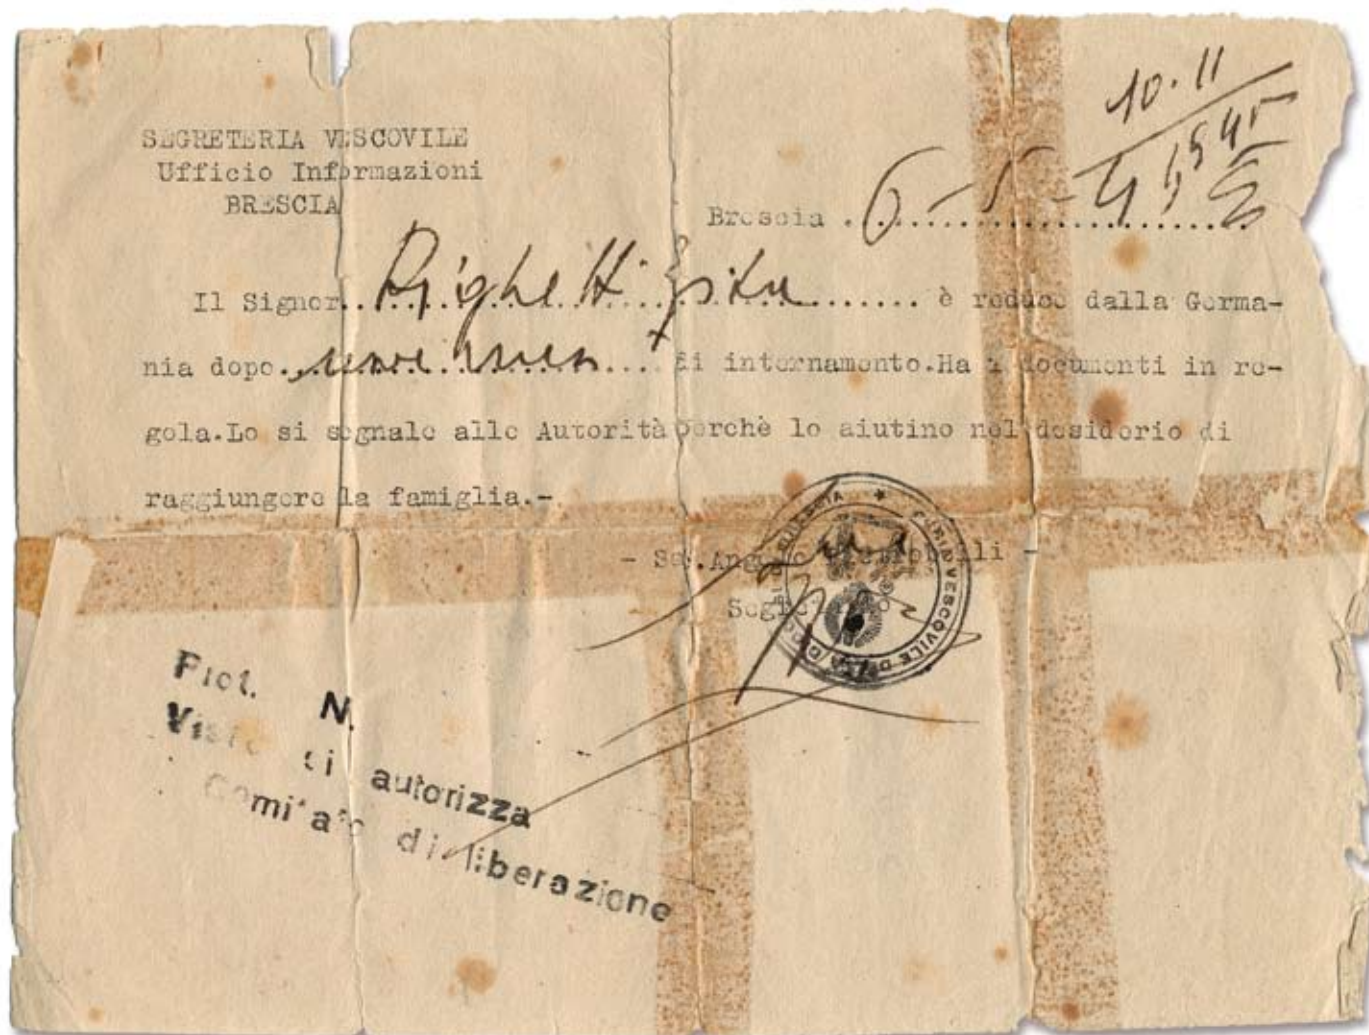 10.11
SEGRETERIA VESCOVILE
Ufficio Informazioni
BRESCIA
Brescia . 6-5-
Il Signor.. Righetti Zita ....... è reduce dalla Germa-
nia dopo.. .... di internamento.Ha i documenti in re-
gola.Lo si segnale alle Autorità perchè lo aiutino nel desiderio di
raggiungere la famiglia.-
- Sac.Angelo -
Segretario
CURIA VESCOVILE DELLA DIOCESI DI BRESCIA
Prot. N.
Visto si autorizza
Comitato di liberazione